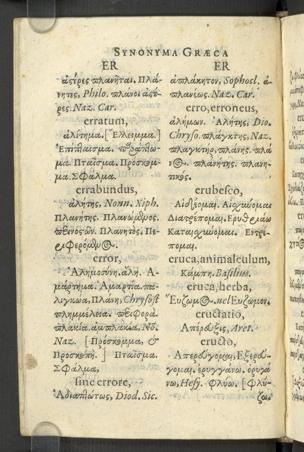 SYNONYMA GRÆCA
ER
ἀστέρες πλανῆται. Πλά-
νητες, Philo. πλάνοι ἀστέ-
ρες. Naz. Car.
erratum,
ἀλίτημα. [Ἔλλειμμα.]
μα. Πταῖσμα. Πρόσκομ-
μα. Σφάλμα.
errabundus,
ἀλήτης. Nonn. Xiph.
Πλανήτης. Πλανώμενος.
Πλανητός. Πε-
ριφερόμενος.
error,
Ἀλημοσύνη, ἄλη. Ἁ-
μάρτημα. Ἁμαρτία.
Πλάνη, Chrysost.
πλημμέλεια.
πλακία. ἀμπλακία. No.
Naz. [Πρόσκομμα, &
Προσκοπή.] Πταῖσμα.
Σφάλμα,
sine errore,
Ἀδιαπτώτως, Diod. Sic.
ER
ἀπλάκητον, Sophocl. ἀ-
πλανέως. Naz. Car.
erro, erroneus,
ἀλήμων. Ἀλήτης, Dio.
Chryso. πλαγκτὸς, Naz.
πλαγκτὴρ. πλάνης. πλά-
νος. πλανήτης. πλανη-
τικός.
erubesco,
Αἰδέομαι. Αἰσχύνομαι
Διατρέπομαι. Ἐρυθριάω
Καταισχύνομαι. Ἐντρέ-
πομαι.
eruca, animalculum,
Κάμπη. Basilius.
eruca, herba,
Εὔζωμος. vel Εὔζωμον.
eructatio,
Ἀπέρευξις, Aret.
eructo,
Ἀπερεύγομαι, Ἐξερεύ-
γομαι. ἐρυγγάνω. ἐρυγά-
νω, Hesy. Φλύω. [Φλύ-
ζω.